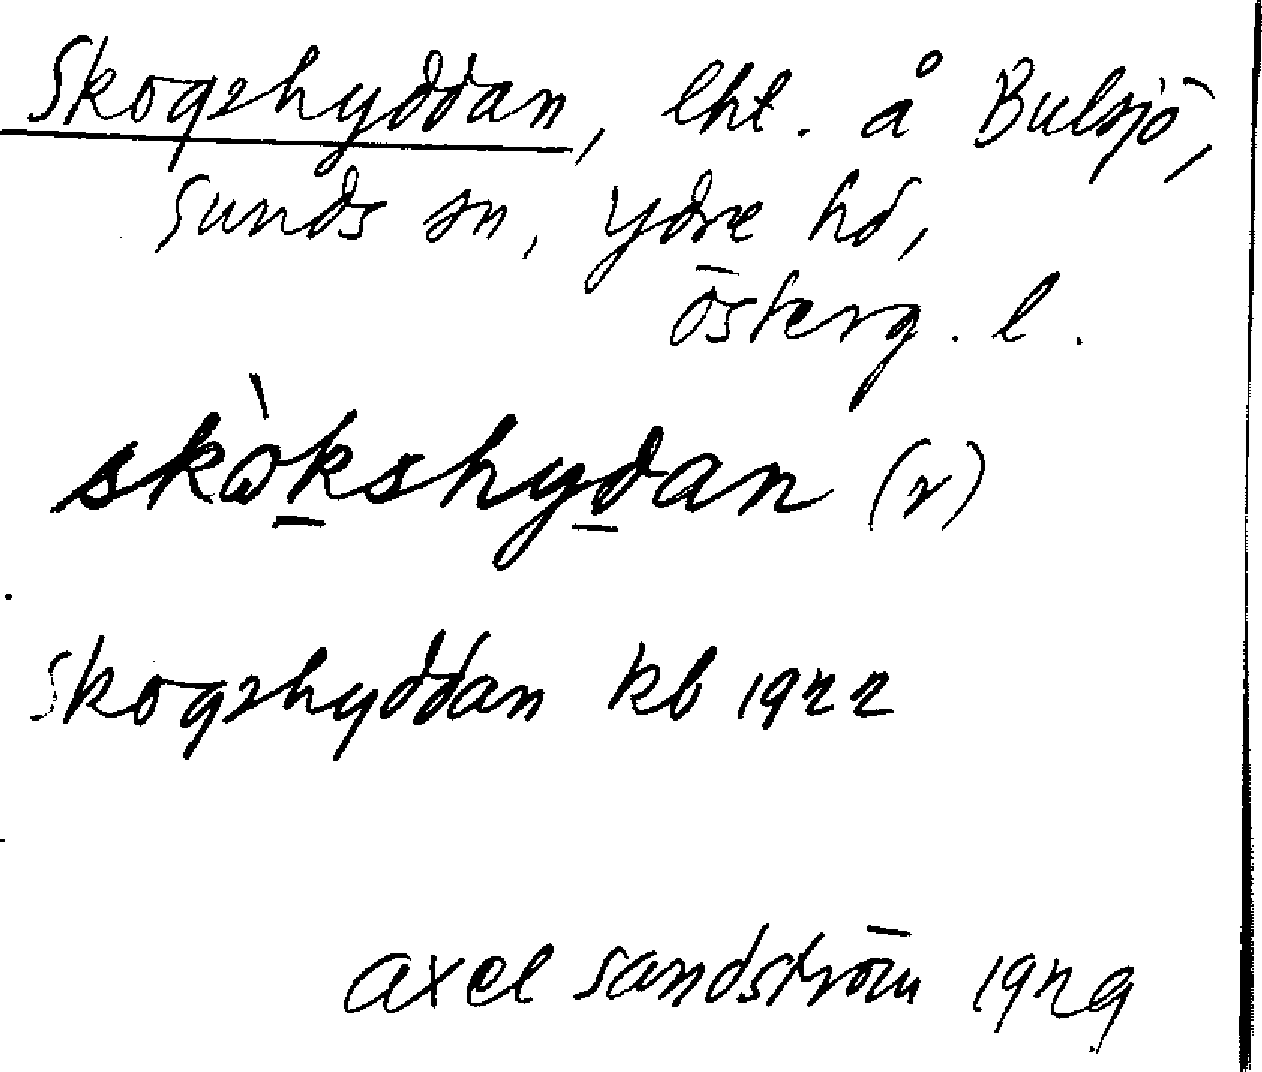 Skogshyddan, lht. å Bulsjö,
Sunds sn, Ydre hd,
Österg. l.
skò̀kshydan (r)
Skogshyddan kb 1922
Axel Sandström 1929